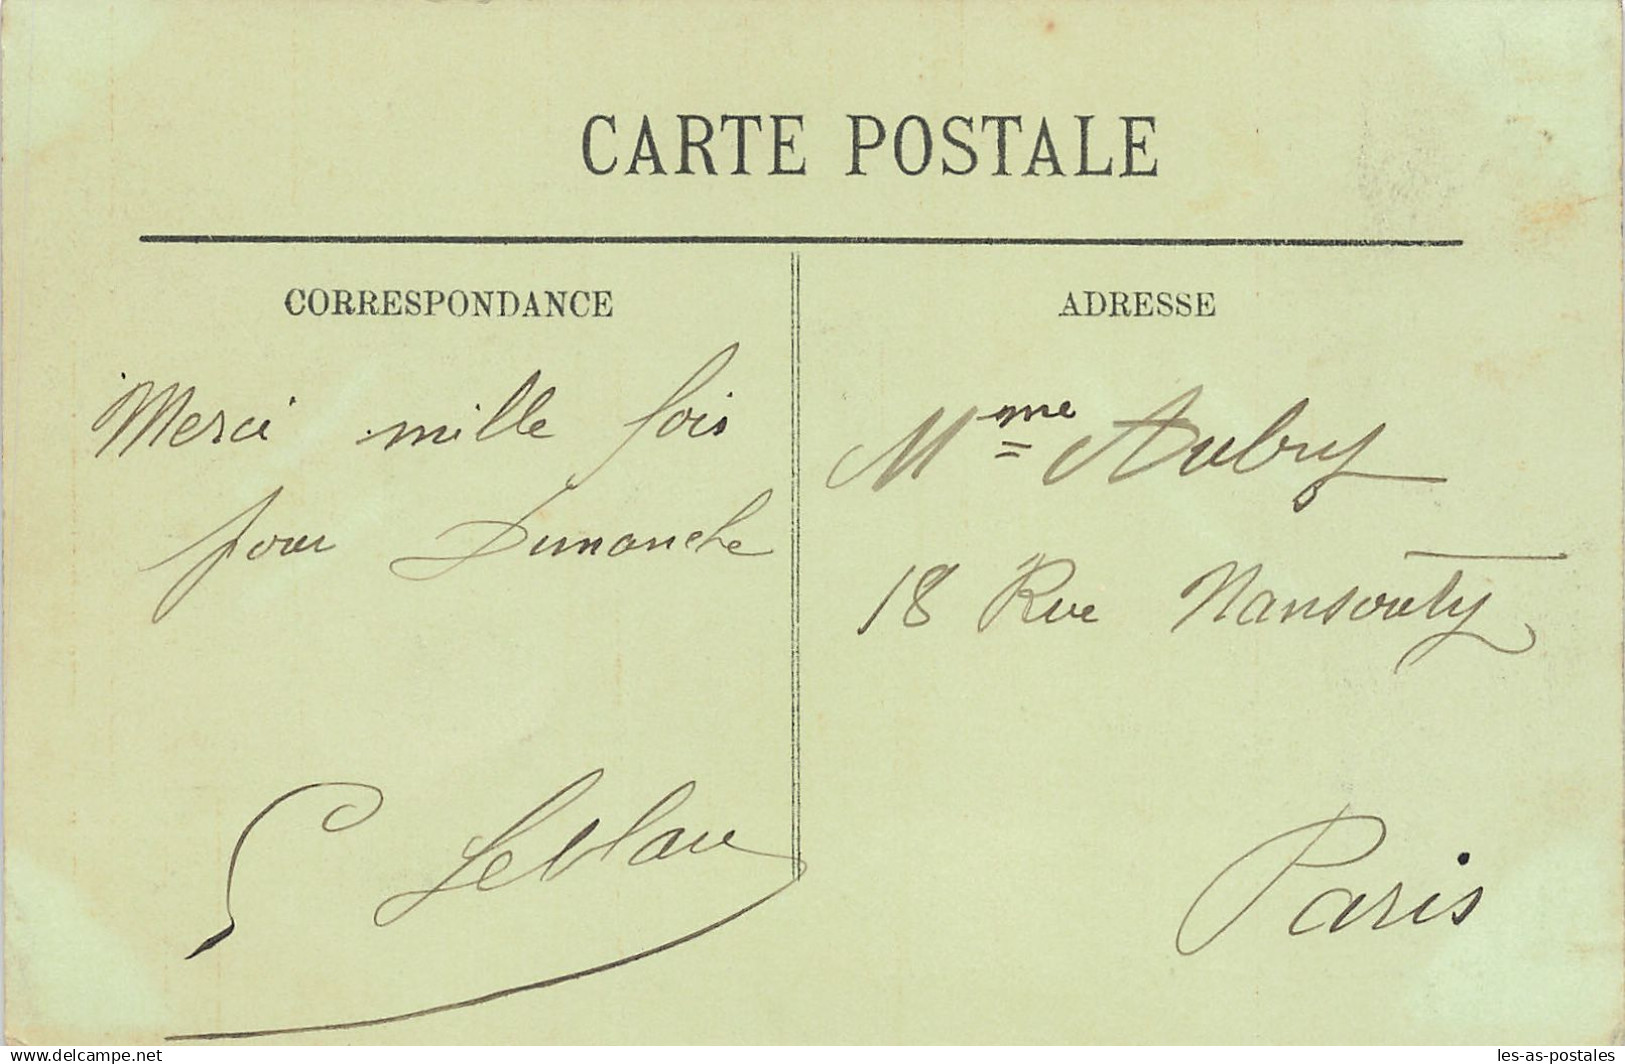 CARTE POSTALE
CORRESPONDANCE
Merci mille fois
pour Dimanche
Leblanc
ADRESSE
Mme Aubry
18 Rue Nansouty
Paris
www.delcampe.net
les-as-postales